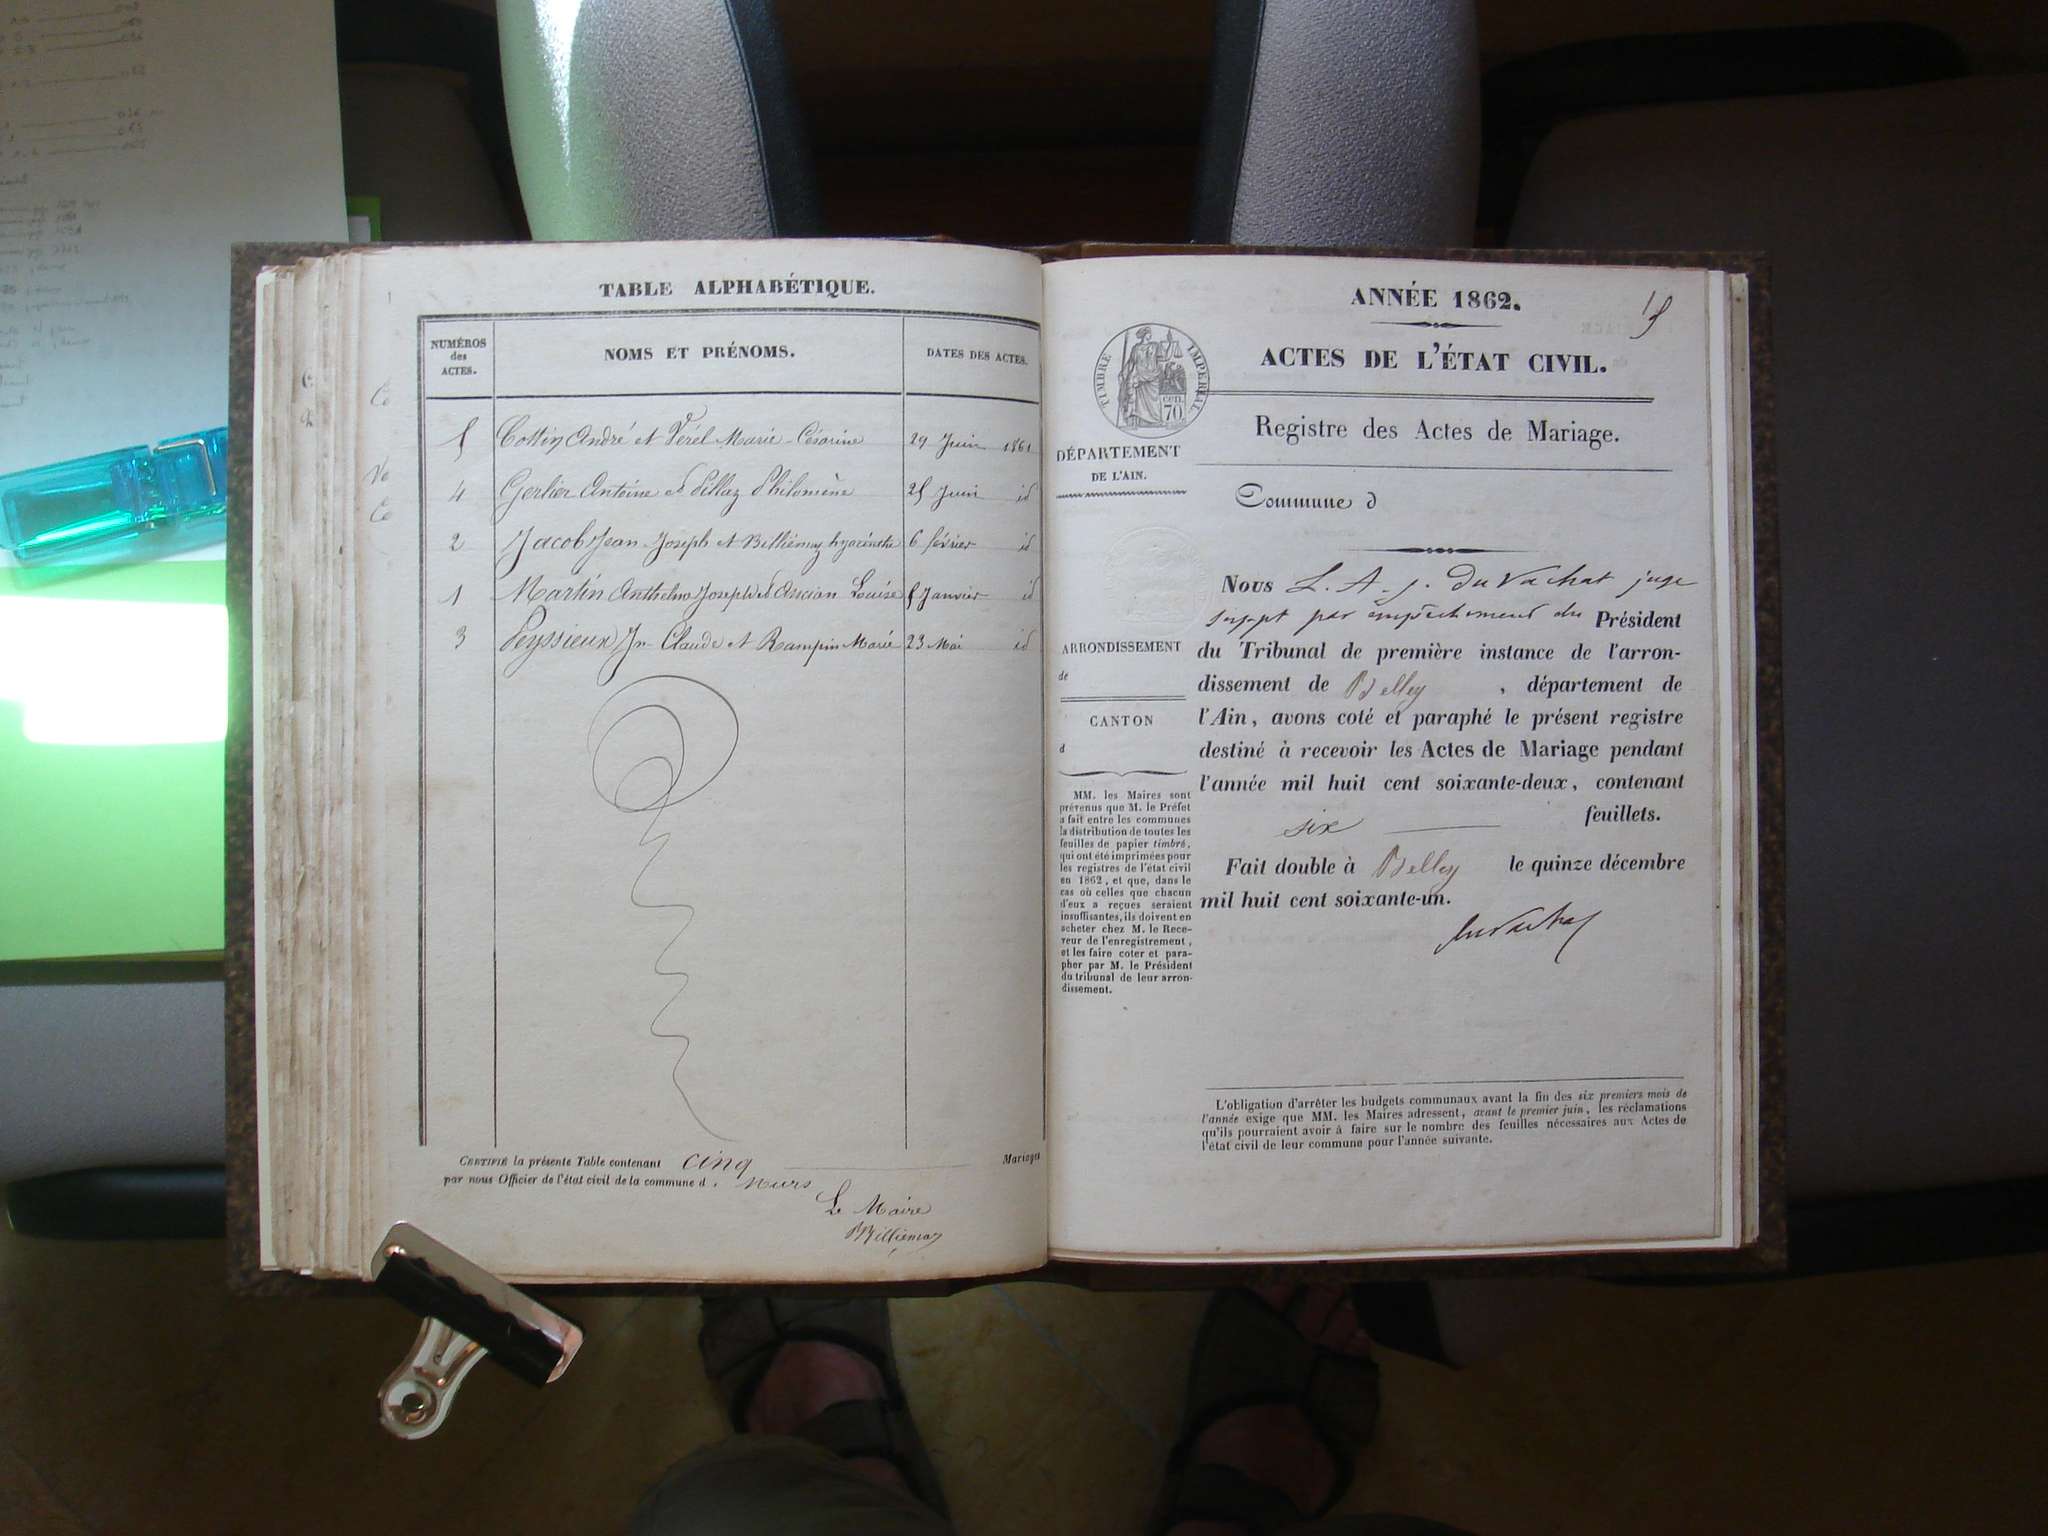 TABLE ALPHABÉTIQUE.
NUMÉROS
des
ACTES.
NOMS ET PRÉNOMS.
DATES DES ACTES.
5 Cottin André et Pérel Marie-Césarine 29 Juin 1861
4 Gerlier Antoine et Pillaz Philomène 25 Juin id
2 Jacob Jean-Joseph et Billiémaz hyacinthe 6 février id
1 Martin Anthelme Joseph et Ancian Louise 5 Janvier id
3 Peyssieux Jn Claude et Rampin Marie 23 Mai id
CERTIFIÉ la présente Table contenant cinq Mariages
par nous Officier de l'état civil de la commune d. Murs
Le Maire
Billiémaz
ANNÉE 1862.
ACTES DE L'ÉTAT CIVIL.
TIMBRE IMPÉRIAL
cen.
70
Registre des Actes de Mariage.
DÉPARTEMENT
DE L'AIN.
Commune d
ARRONDISSEMENT
de
CANTON
d
MM. les Maires sont
prévenus que M. le Préfet
a fait entre les communes
la distribution de toutes les
feuilles de papier timbré,
qui ont été imprimées pour
les registres de l'état civil
en 1862, et que, dans le
cas où celles que chacun
d'eux a reçues seraient
insuffisantes, ils doivent en
acheter chez M. le Rece-
veur de l'enregistrement,
et les faire coter et para-
pher par M. le Président
du tribunal de leur arron-
dissement.
Nous L. A. J. Du Vachat juge
suppt par empêchement du Président
du Tribunal de première instance de l'arron-
dissement de Belley , département de
l'Ain, avons coté et paraphé le présent registre
destiné à recevoir les Actes de Mariage pendant
l'année mil huit cent soixante-deux, contenant
six feuillets.
Fait double à Belley le quinze décembre
mil huit cent soixante-un.
Du Vachat
L'obligation d'arrêter les budgets communaux avant la fin des six premiers mois de
l'année exige que MM. les Maires adressent, avant le premier juin, les réclamations
qu'ils pourraient avoir à faire sur le nombre des feuilles nécessaires aux Actes de
l'état civil de leur commune pour l'année suivante.